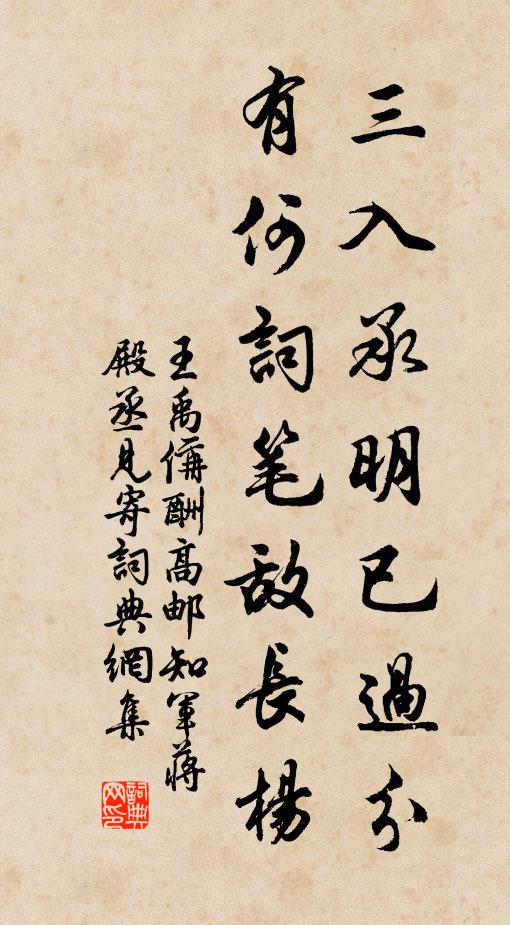 三入承明已過分
有何詞笔敌長楊
王禹偁酬高邮知軍蔣
殿丞見寄詞典網集
詞典网印